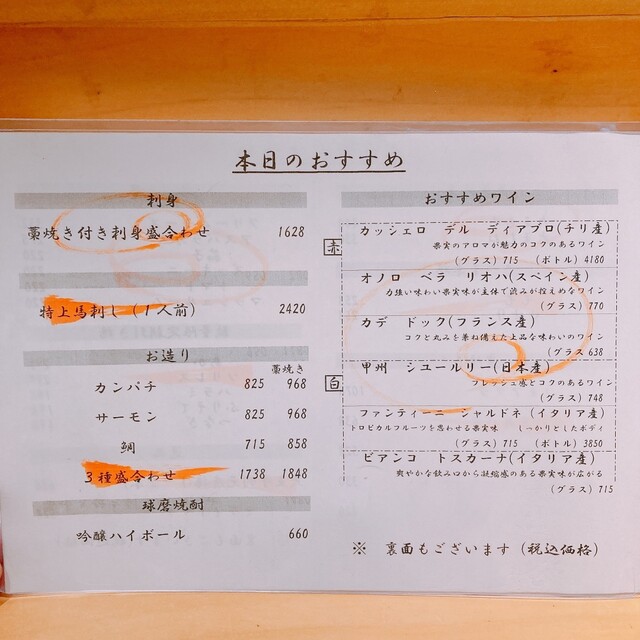 本日のおすすめ
刺身
藁焼き付き刺身盛合わせ 1628
特上馬刺し(1人前) 2420
お造り
藁焼き
カンパチ 825 968
サーモン 825 968
鯛 715 858
3種盛合わせ 1738 1848
球磨焼酎
吟醸ハイボール 660
おすすめワイン
赤
カッシェロ デル ディアブロ(チリ産)
果実のアロマが魅力のコクのあるワイン
(グラス) 715 (ボトル) 4180
オノロ ベラ リオハ(スペイン産)
力強い味わい果実味が主体で渋みが控えめなワイン
(グラス) 770
カデ ドック(フランス産)
コクと丸みを兼ね備えた上品な味わいのワイン
(グラス 638
白
甲州 シュールリー(日本産)
フレッシュ感とコクのあるワイン
(グラス) 748
ファンティーニ シャルドネ (イタリア産)
トロピカルフルーツを思わせる果実味 しっかりとしたボディ
(グラス) 715 (ボトル) 3850
ビアンコ トスカーナ(イタリア産)
爽やかな飲み口から凝縮感のある果実味が広がる
(グラス) 715
※ 裏面もございます (税込価格)